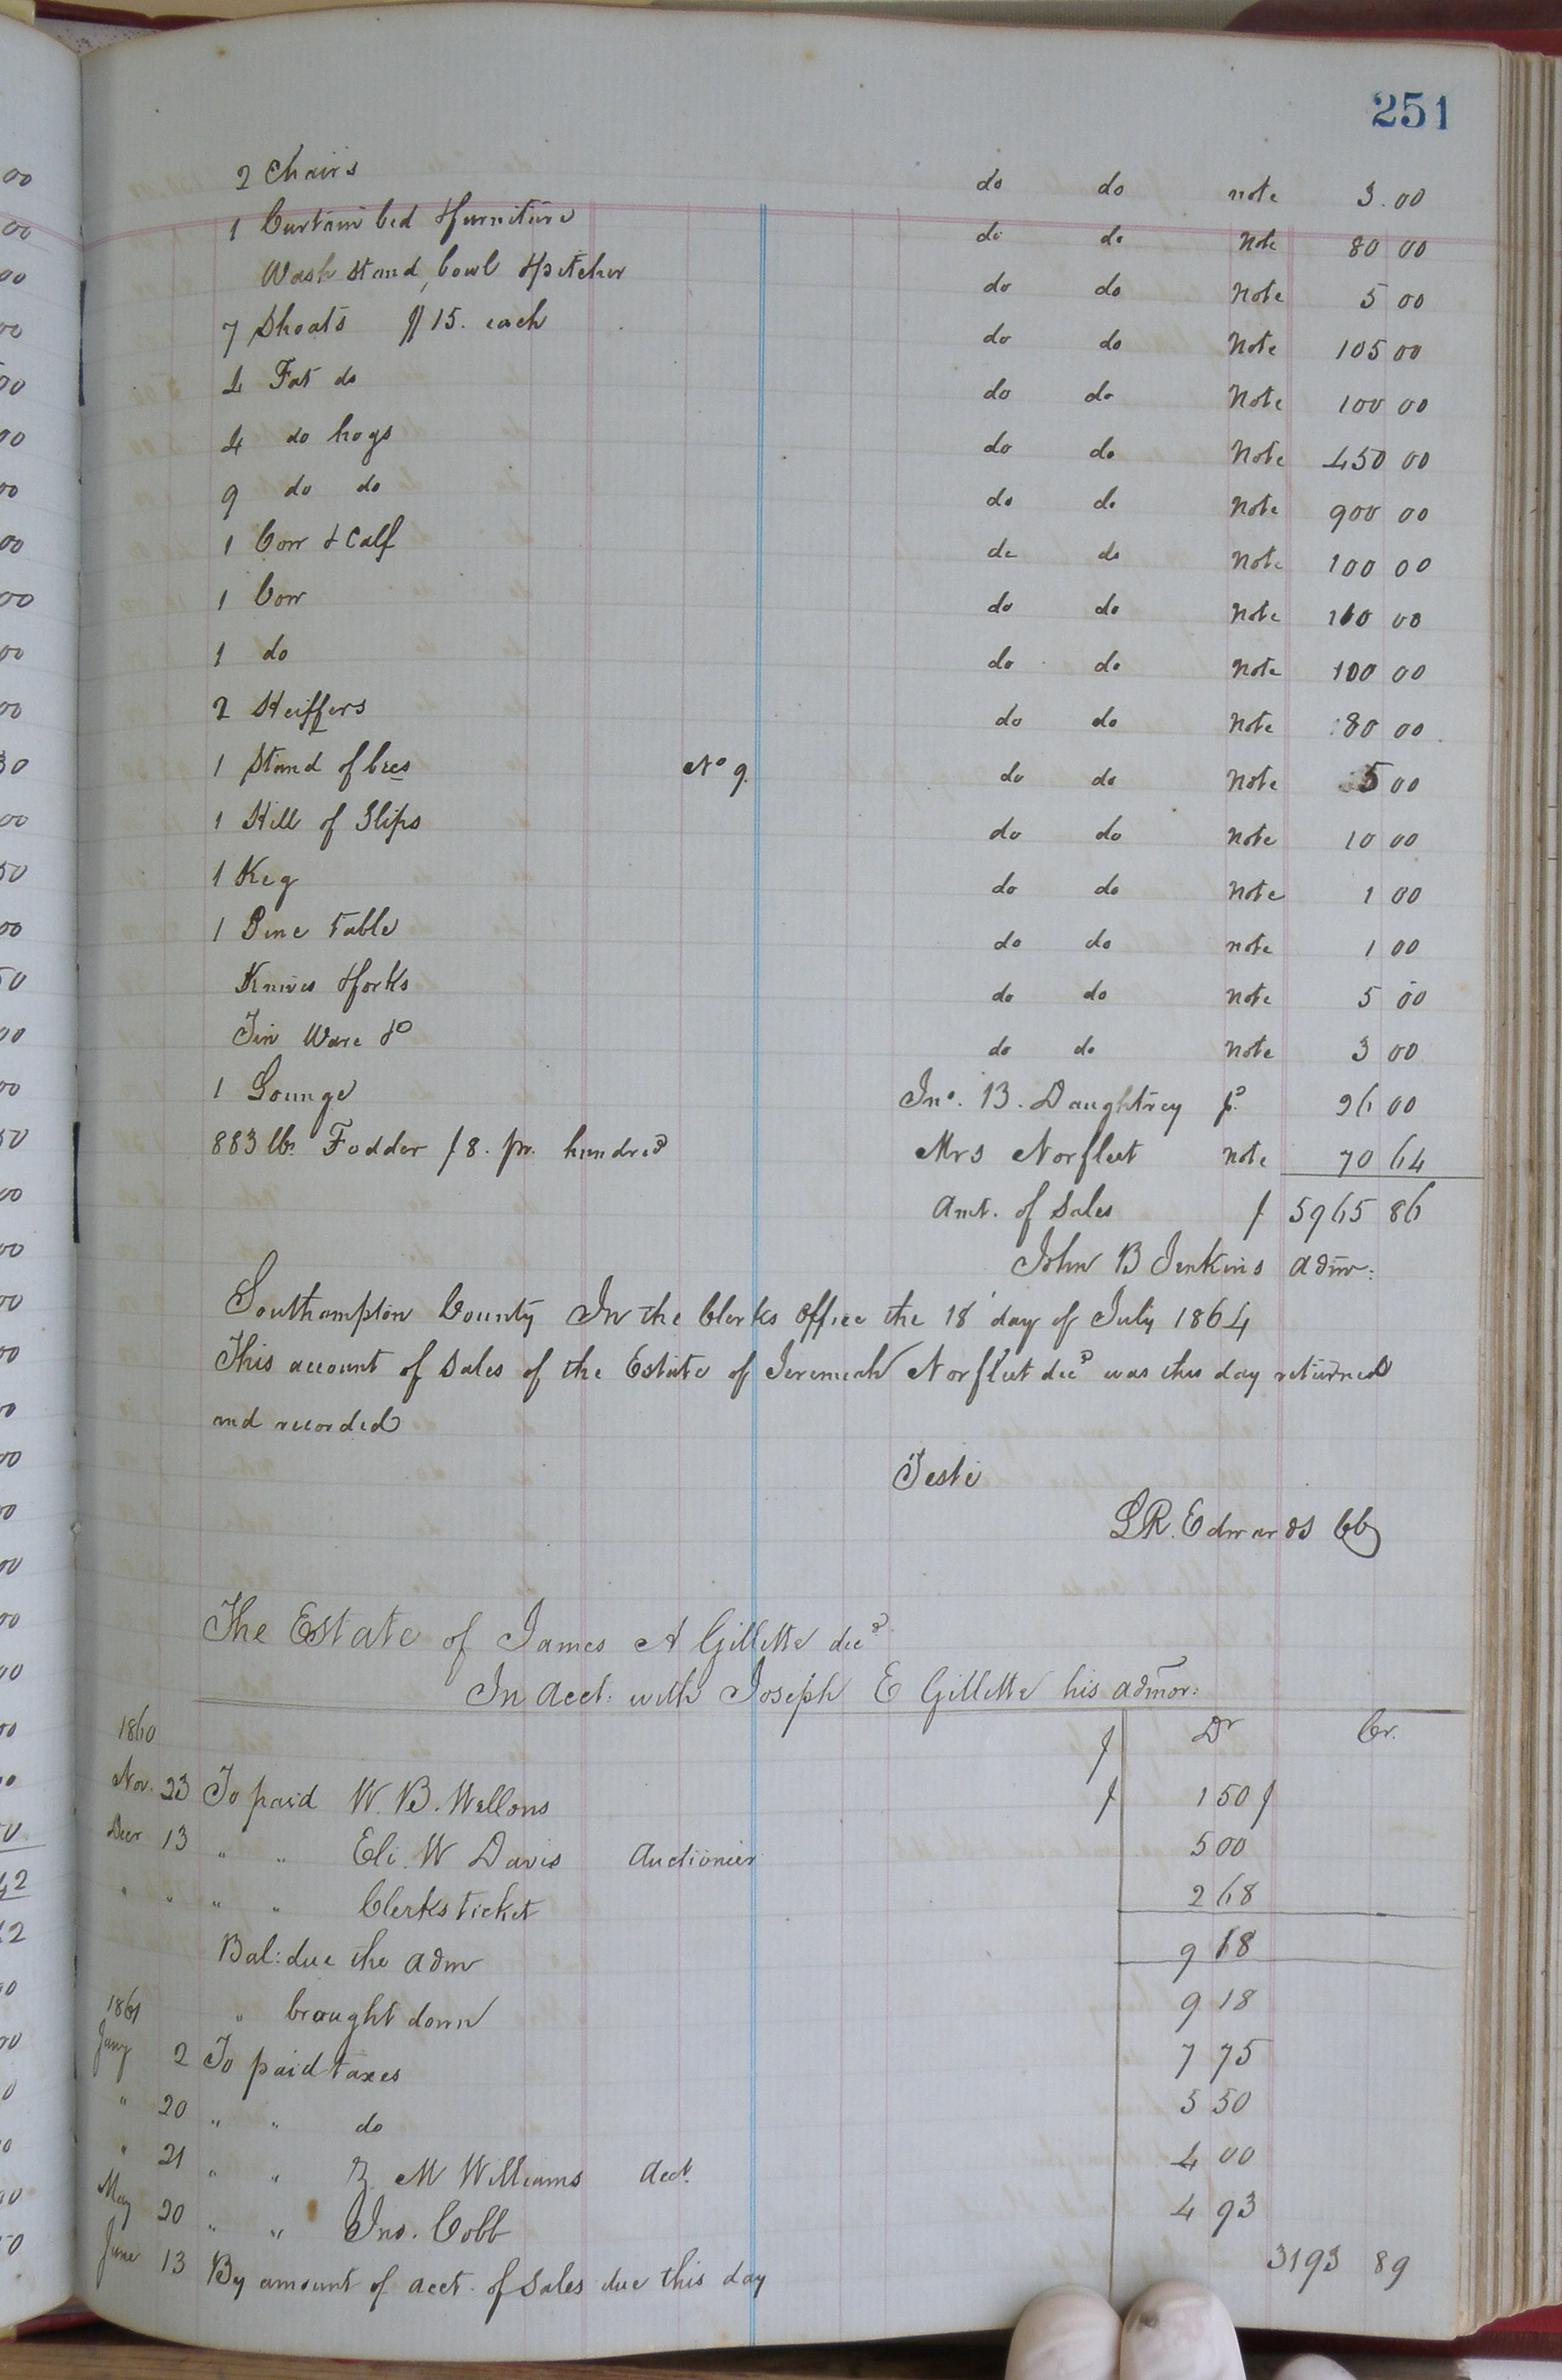 251
2 Chairs do do note 3.00
1 Curtain bed & furniture do do Note 80 00
Wash stand, bowl & pitcher do do Note 5 00
7 Shoats $15. each do do Note 105 00
4 Fat do do do Note 100 00
4 do hogs do do Note 450 00
9 do do do do Note 900 00
1 Cow & Calf do do Note 100 00
1 Cow do do Note 100 00
1 do do do Note 100 00
2 Heiffers do do Note 80 00
1 Stand of bees No 9. do do Note 5 00
1 Hill of Slips do do Note 10 00
1 Keg do do Note 1 00
1 Pine Table do do note 1 00
Knives & forks do do note 5 00
Tin Ware &c do do note 3 00
1 Lounge Jno. B. Daughtrey pd. 26 00
883 lbs. Fodder $8. pr. hundred Mrs Norfleet note 70 64
Amt. of Sales $ 5965 86
John B Jenkins admr:
Southampton County In the Clerks Office the 18 day of July 1864
This account of sales of the Estate of Jeremiah Norfleet decd was this day returned
and recorded
Teste
L R. Edwards CC
The Estate of James A Gillette decd
In Acct: with Joseph E Gillette his admor:
1860 $ Dr Cr.
Nov. 23 To paid W. B. Wellons $ 1 50
Decr 13 " " Eli W Davis Auctionier 5 00
" " " " Clerks ticket 2 68
Bal: due the admr 9 18
1861 " brought down 9 18
Jany 2 To paid taxes 7 75
" 20 " " do 5 50
" 21 " " M Williams Acct. 4 00
May 20 " " Jno. Cobb 4 93
June 13 By amount of acct. of Sales due this day 3193 89